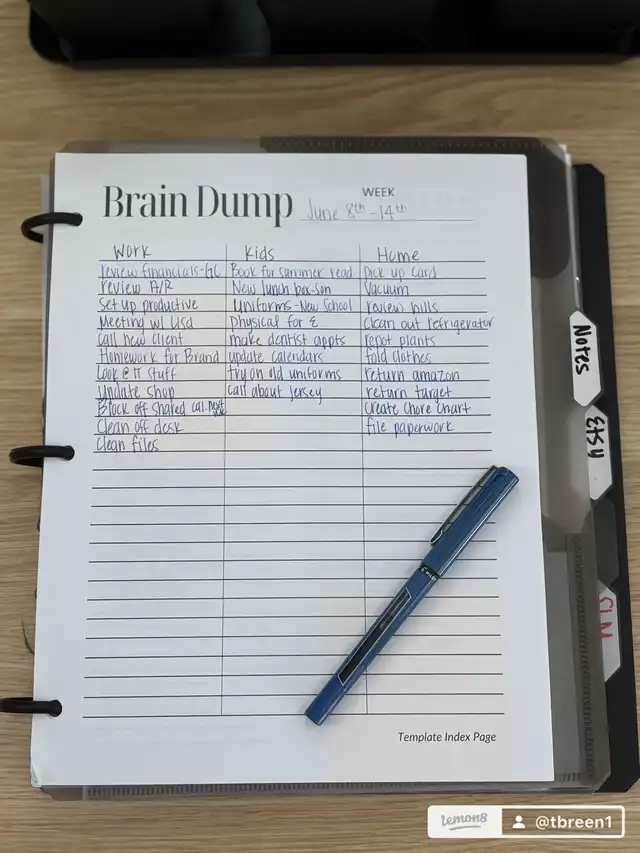 Brain Dump
WEEK
June 8th - 14th
Work Kids Home
review financials-GC Book for summer read pick up card
review A/R New lunch box-son Vacuum
Set up productive Uniforms-New School review bills
Meeting w/ Usd physical for E Clean out refrigerator
call new client make dentist appts repot plants
Homework for Brand update calendars fold clothes
Look @ IT stuff try on old uniforms return amazon
Update shop call about jersey return target
Block off shared cal. Create Chore Chart
Clean off desk file paperwork
Clean files
Template Index Page
Notes
ETSY
lemon8
@tbreen1